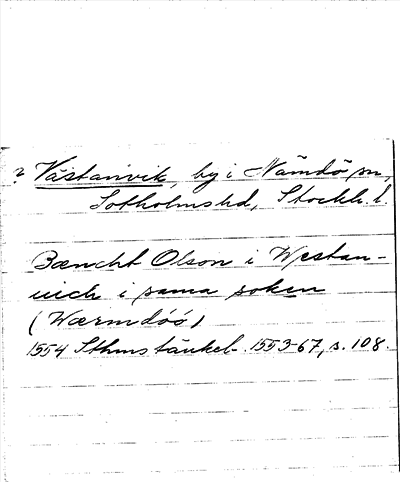 ? Västanvik, by i Nämdö sn,
Sotholms hd, Stockh. l.
Bæncht Olson i Westan-
uich i sama soken
(Wærmdöö)
1554 Sthms tänkeb. 1553-67, s. 108.